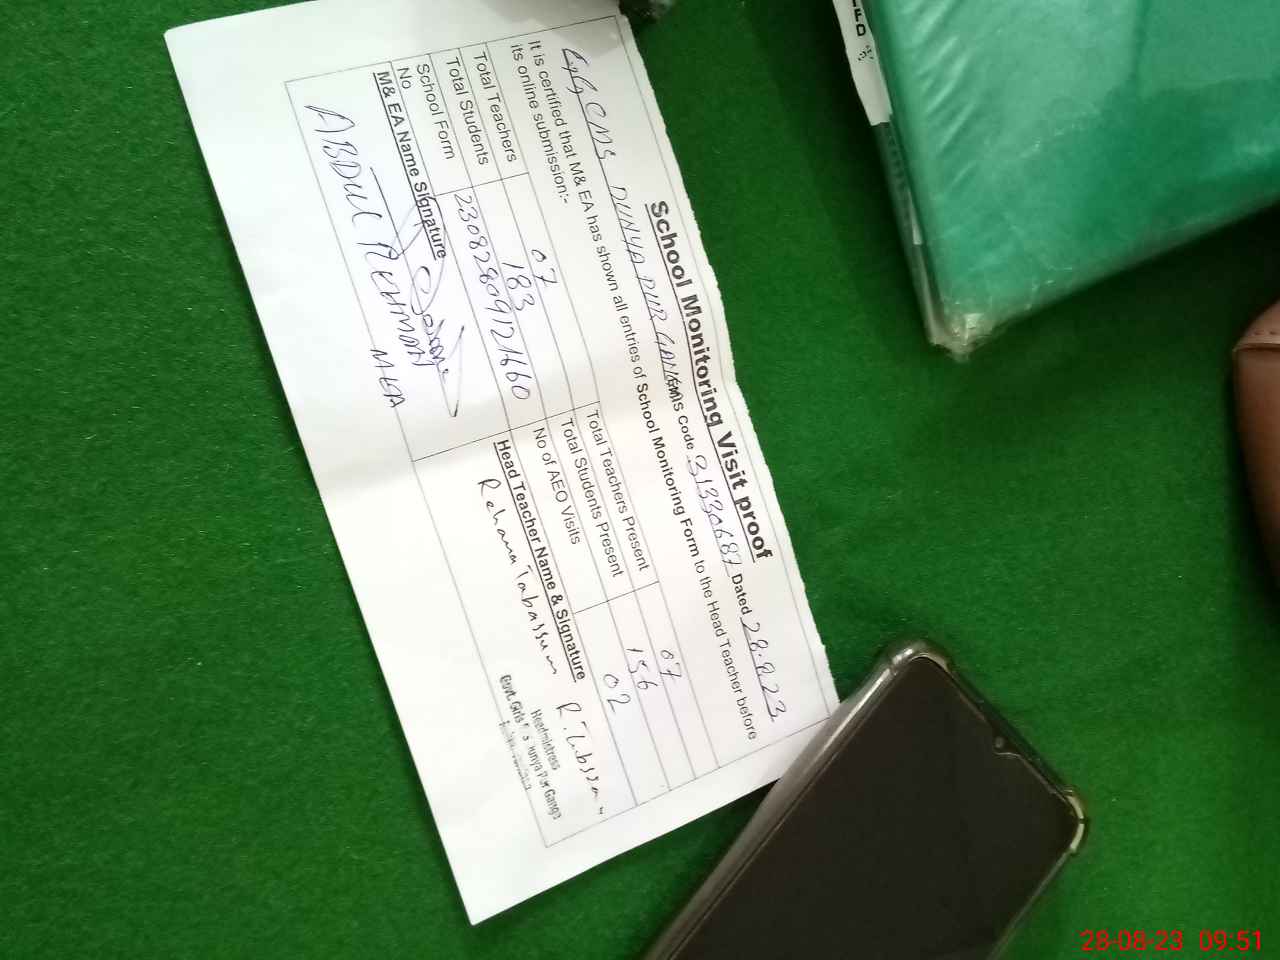 School Monitoring Visit proof
CMS DUNYA PUR GANGA EMIS Code 31330687 Dated 28.8.23
It is certified that M& EA has shown all entries of School Monitoring Form to the Head Teacher before
its online submission:-
Total Teachers 07 Total Teachers Present 07
Total Students 183 Total Students Present 156
School Form No 23082809121660 No of AEO Visits 02
M& EA Name Signature Head Teacher Name & Signature
ABDUL REHMAN Rehana Tabassum R.Tubssam
MEA
Headmistress
Govt. Girls Dunya Pur Ganga
28-08-23 09:51